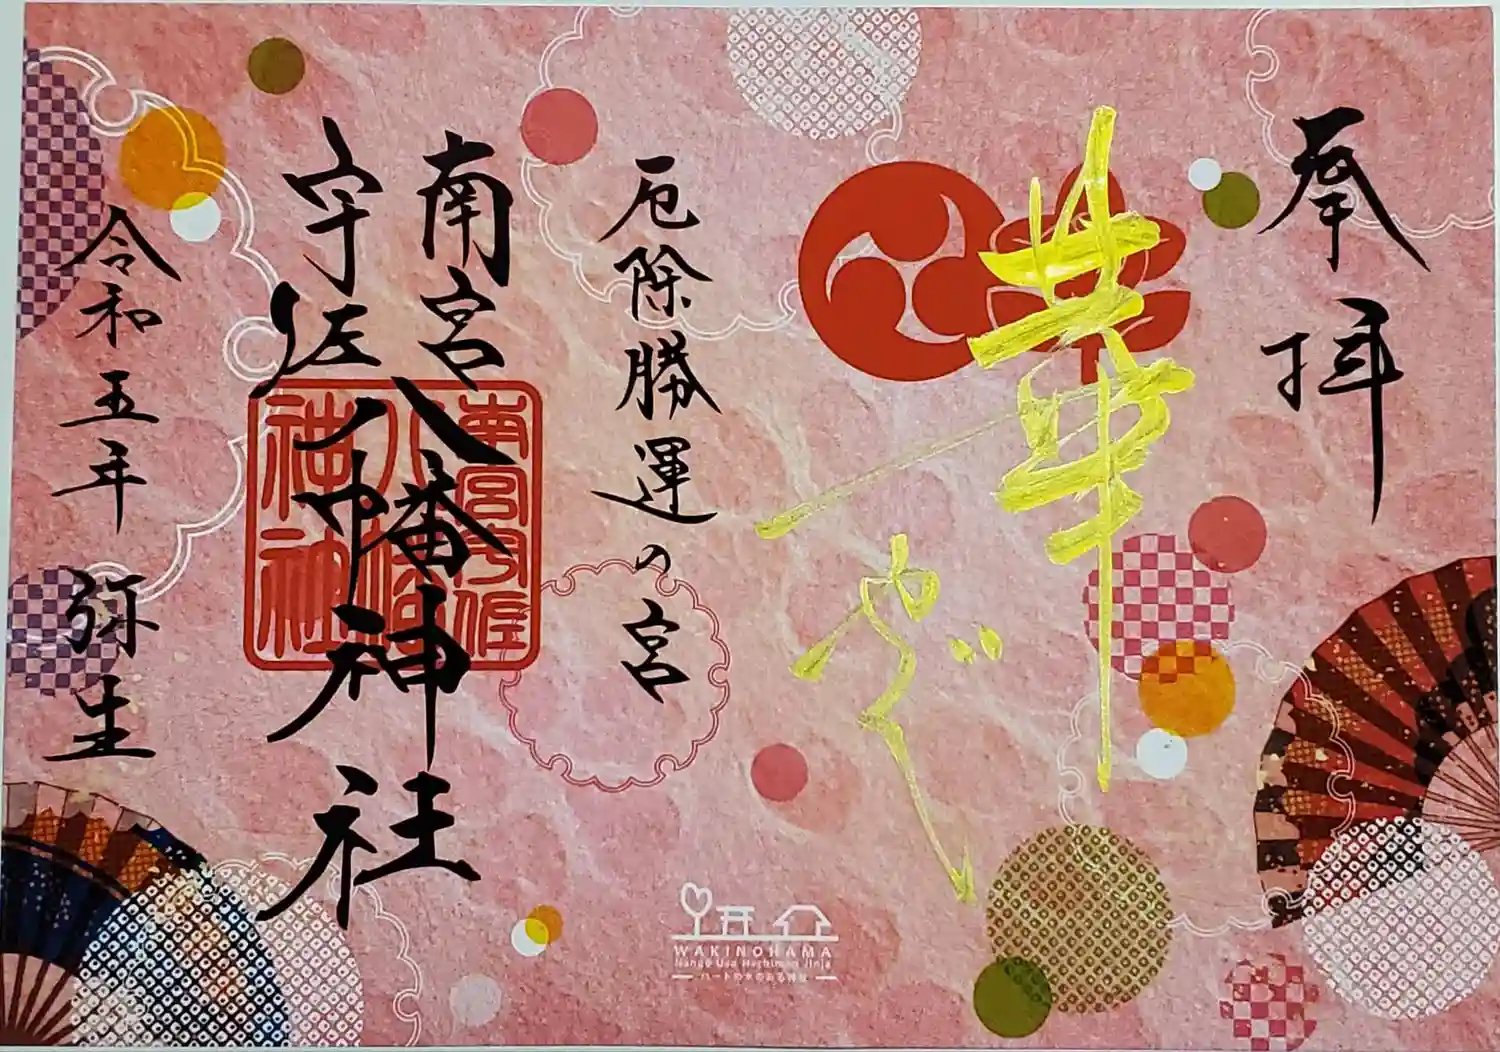 奉拝
華やぐ
厄除勝運の宮
南宮
宇佐
八幡神社
令和五年 弥生
南宮宇佐
八幡
神社
WAKINOHAMA
Nangū Usa Hachiman Jinja
ハートの木のある神社